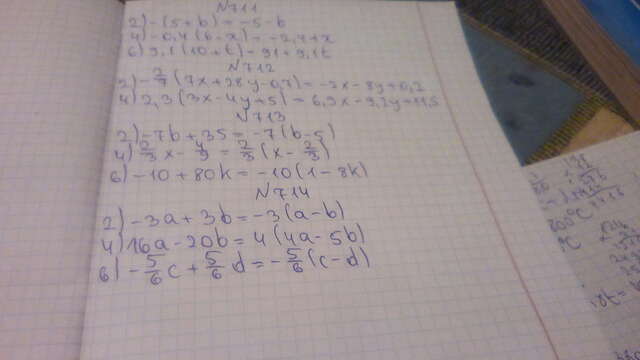 N711
2) -(5+b) = -5-b
4) -0,4(6-x) = -2,4+x
6) 9,1(10+t) = 91+9,1t
N712
2) -2/7(7x+28y-0,7) = -2x-8y+0,2
4) 2,3(3x-4y+5) = 6,9x-9,2y+11,5
N713
2) -7b+35 = -7(b-5)
4) 2/3x-4/9 = 2/3(x-2/3)
6) -10+80k = -10(1-8k)
N714
2) -3a+3b = -3(a-b)
4) 16a-20b = 4(4a-5b)
6) -5/6c+5/6d = -5/6(c-d)